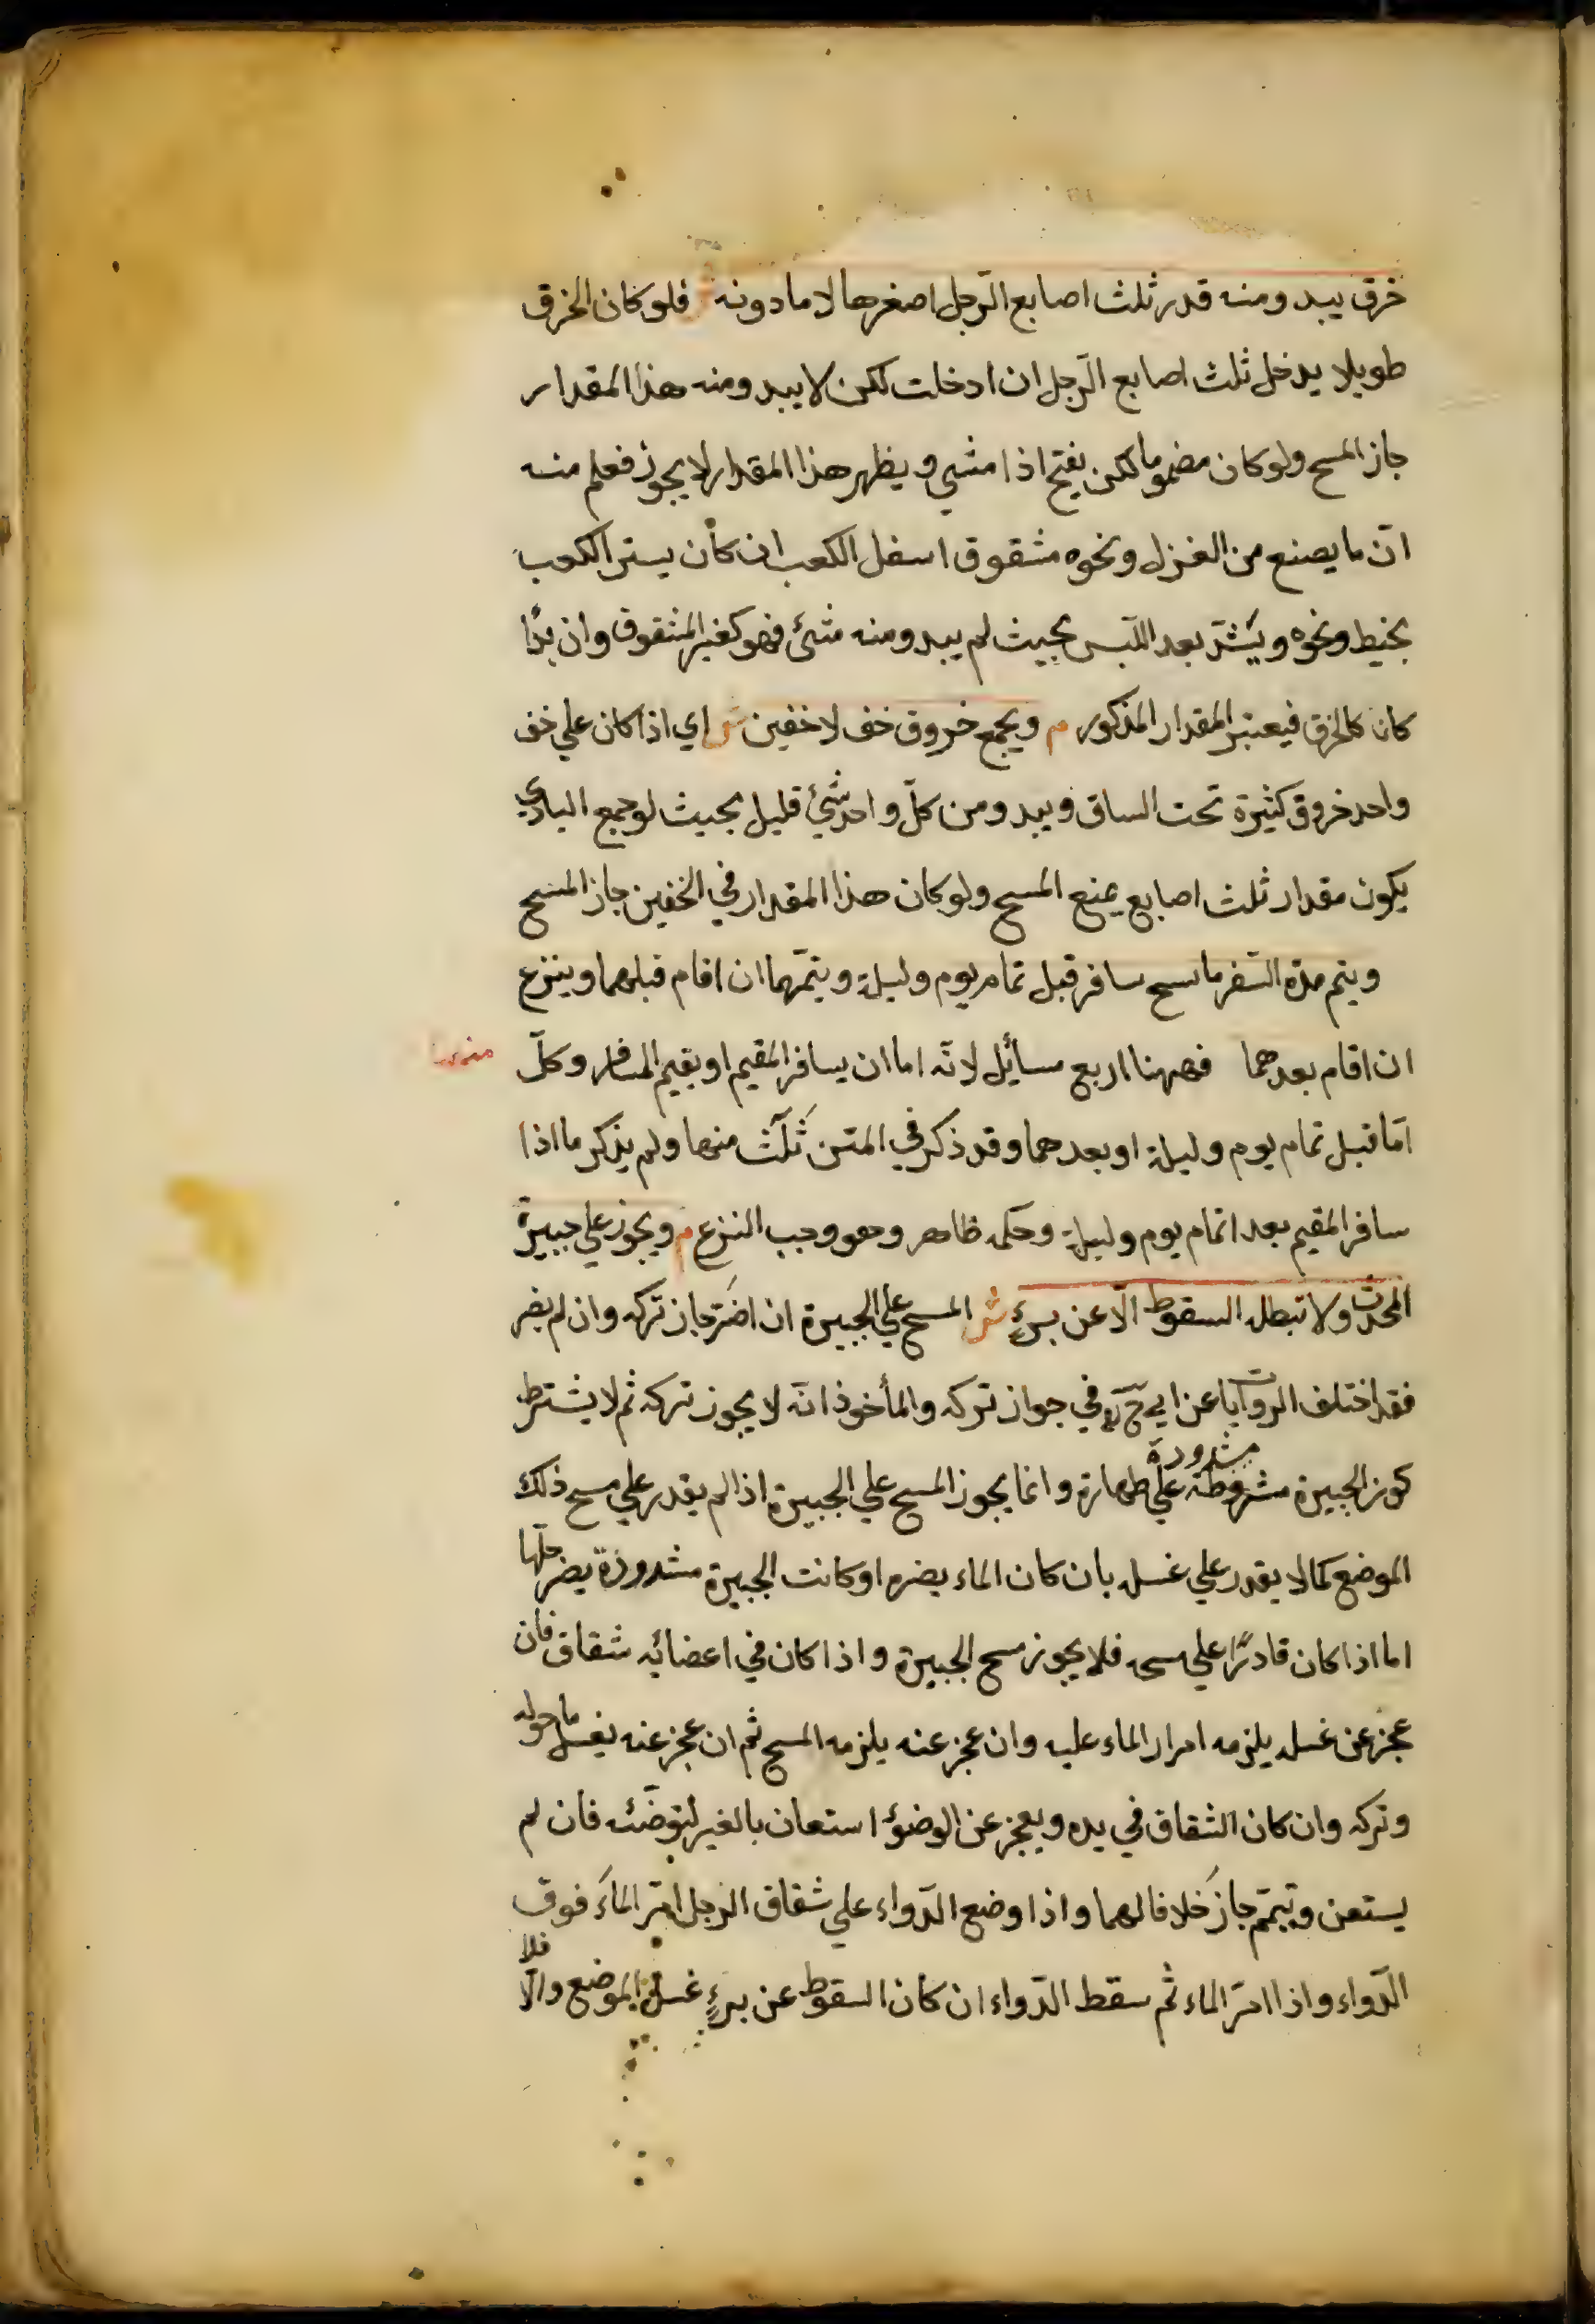 خرق يبدو منه قدر ثلث اصابع الرّجل اصغرها لا ما دونه فلو كان الخرق
طويلا يدخل ثلث اصابع الرّجل ان ادخلت لكن لا يبدو منه هذا المقدار
جاز المسح ولو كان مضموما لكن يفتح اذا مشي ويظهر هذا المقدار لا يجوز فعلم منه
انّ ما يصنع من الغزل ونحوه مشقوق اسفل الكعب ان كان يستر الكعب
بخيط ونحوه ويشدّ بعد اللبس بحيث لم يبدو منه شئ فهو كغير المشقوق وان بدا
كان كالخرق فيعتبر المقدار المذكور م ويجمع خروق خف لا خفين ش اي اذا كان علي خف
واحد خروق كثيرة تحت الساق ويبدو من كلّ واحد شئ قليل بحيث لو جمع البادي
يكون مقدار ثلث اصابع يمنع المسح ولو كان هذا المقدار في الخفين جاز المسح
ويتم مدّة السّفر ماسح سافر قبل تمام يوم وليلة ويتمّهما ان اقام قبلهما وينزع
ان اقام بعدهما فههنا اربع مسائل لانّه اما ان يسافر المقيم او يقيم المسافر وكلّ
امّا قبل تمام يوم وليلة او بعدهما وقد ذكر في المتن ثلث منها ولم يذكر ما اذا
سافر المقيم بعد اتمام يوم وليلة وحكمه ظاهر وهو وجب النزع م ويجوز علي جبيرة
المحدث ولا تبطله السقوط الّا عن برءٍ ش المسح علي الجبيرة ان اضرّ جاز تركه وان لم يضر
فقد اختلف الروايات عن ابي ح رح في جواز تركه والمأخوذ انّه لا يجوز تركه ثم لا يشترط
كون الجبيرة مشروطة مشدودة علي طهارة وانما يجوز المسح علي الجبيرة اذا لم يقدر علي مسح ذلك
الموضع كما لا يقدر علي غسله بان كان الماء يضره او كانت الجبيرة مشدودة يضر حلّها
اما اذا كان قادرًا علي مسحه فلا يجوز مسح الجبيرة واذا كان في اعضائه شقاق فان
عجز عن غسله يلزمه امرار الماء عليه وان عجز عنه يلزمه المسح ثم ان عجز عنه يغسل ما حوله
وتركه وان كان الشقاق في يده ويعجز عن الوضوء استعان بالغير ليتوضّئه فان لم
يستعن وتيمّم جاز خلافا لهما واذا وضع الدّواء علي شقاق الرّجل امرّ الماء فوق
الدّواء واذا امرّ الماء ثم سقط الدّواء ان كان السقوط عن برءٍ غسل الموضع والّا فلا